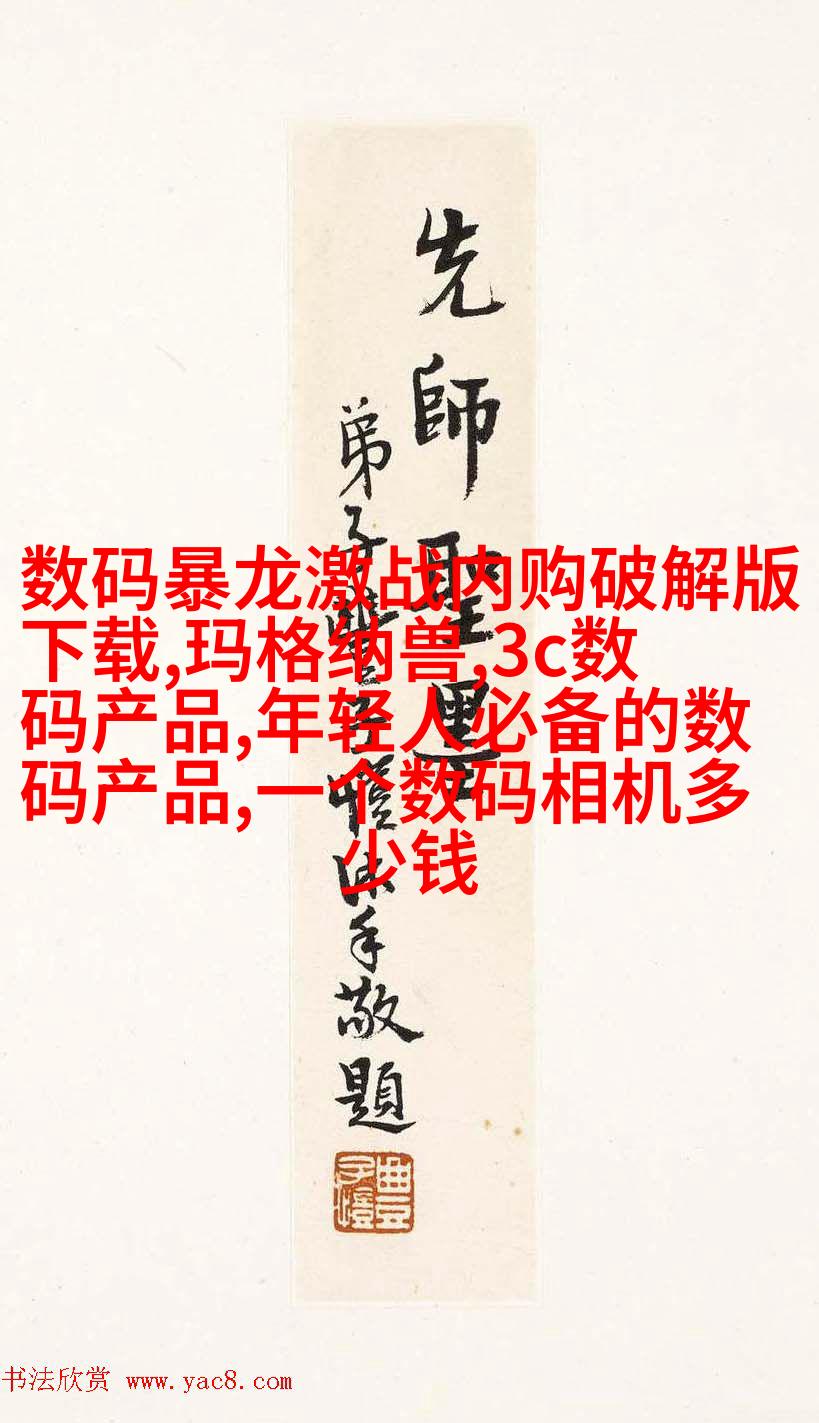 先師聖墨
弟子豐子愷沐手敬題
豐子愷
数码暴龙激战内购破解版
下载,玛格纳兽,3c数
码产品,年轻人必备的数
码产品,一个数码相机多
少钱
书法欣赏 www.yac8.com